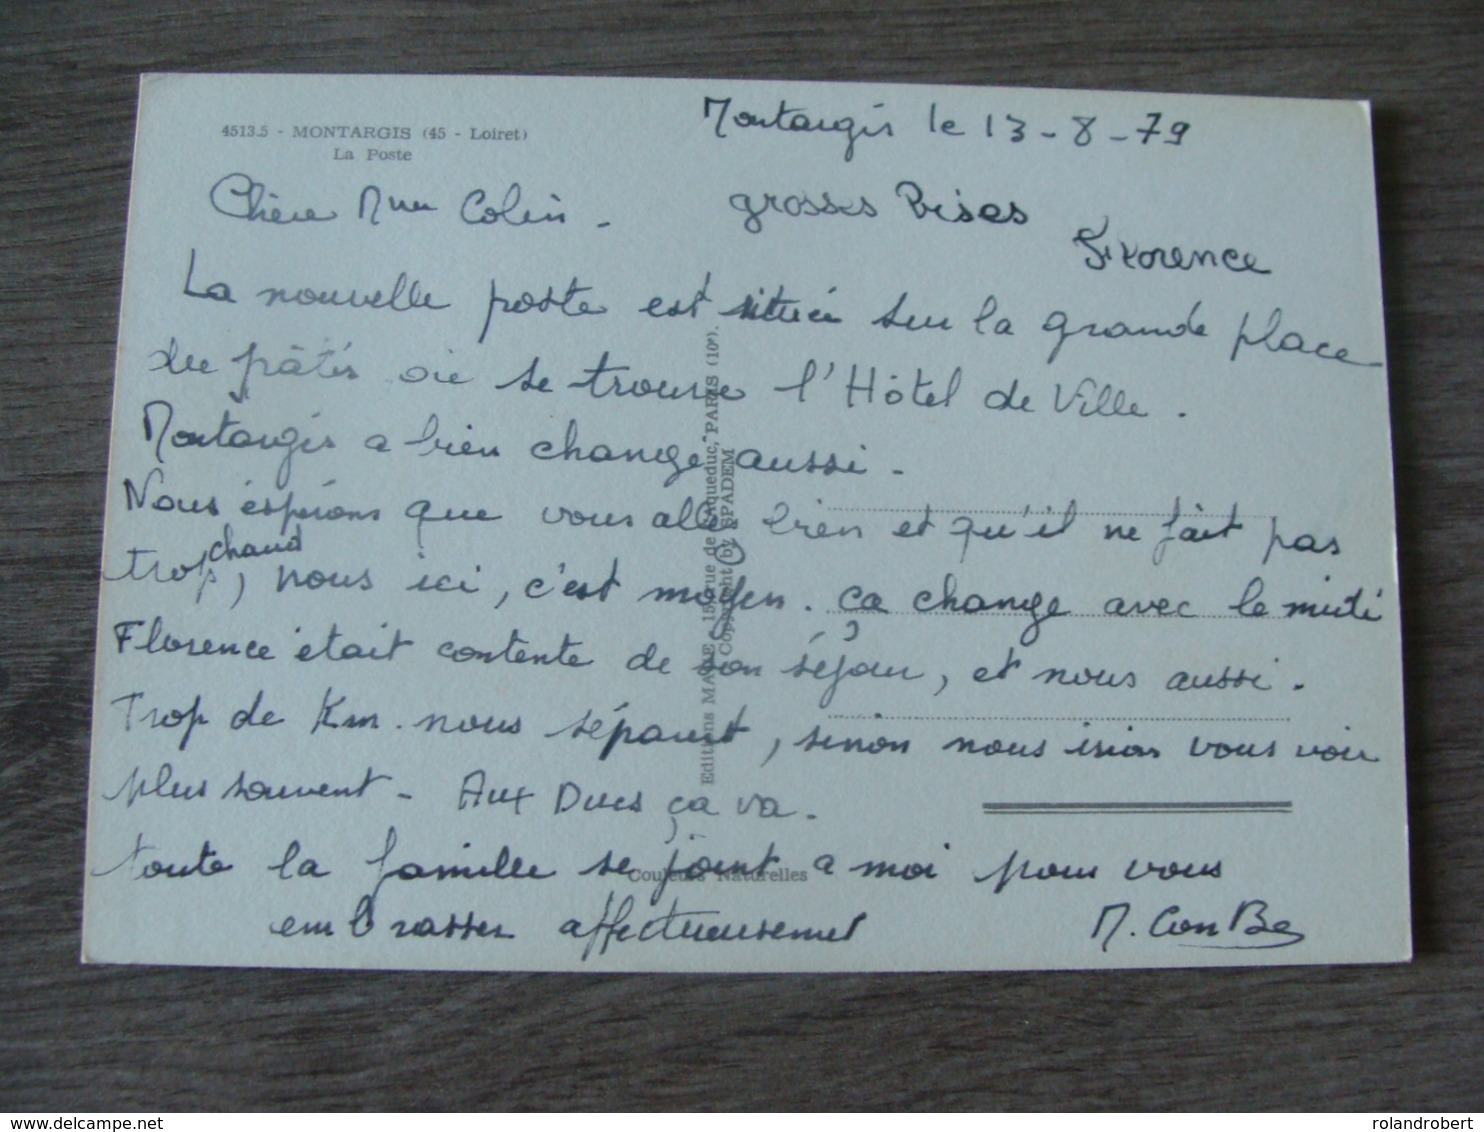 4513.5 - MONTARGIS (45 - Loiret)
La Poste
Montargis le 13-8-79
Chère Mme Colin.
grosses Bises
Florence
La nouvelle poste est située sur la grande place
du pâtis où se trouve l'Hôtel de Ville.
Montargis a bien change aussi.
Nous espérons que vous allez bien et qu'il ne fait pas
trop chaud, nous ici, c'est moyen. ça change avec le midi
Florence était contente de son séjour, et nous aussi.
Trop de Km. nous séparent, sinon nous irions vous voir
plus souvent - Aux Ducs ça va.
toute la famille se joint a moi pour vous
embrasser affectueusement
Editions MAGE, rue de l'Aqueduc, PARIS (10e).
Copyright by SPADEM
Couleurs Naturelles
rolandrobert